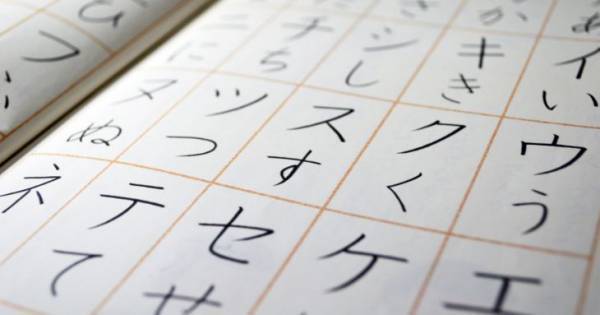 あイいウうエ
かキきクくケ
シしスすセせ
チちツつテて
ニにヌぬネ
ひフ